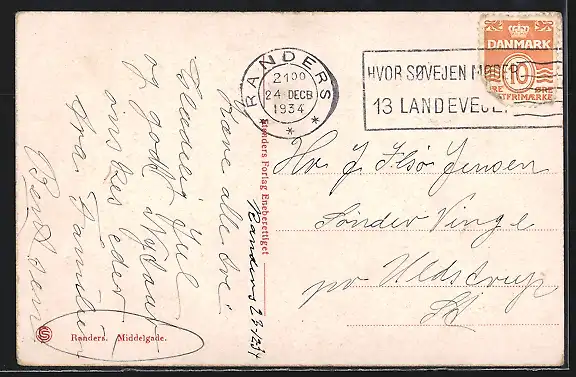 RANDERS
2100
24 DECB
1934
HVOR SØVEJEN MØDER
13 LANDEVEJE
DANMARK
10
ØRE
POSTFRIMÆRKE
Randers 23-12-34
Kære alle tre!
Glædelig Jul
og godt Nytaar
ønskes eder
fra Familien
Hr. J. Ilsø Jensen
Sønder Vinge
pr Ulstrup
Randers Forlag Eneberettiget
Randers. Middelgade.